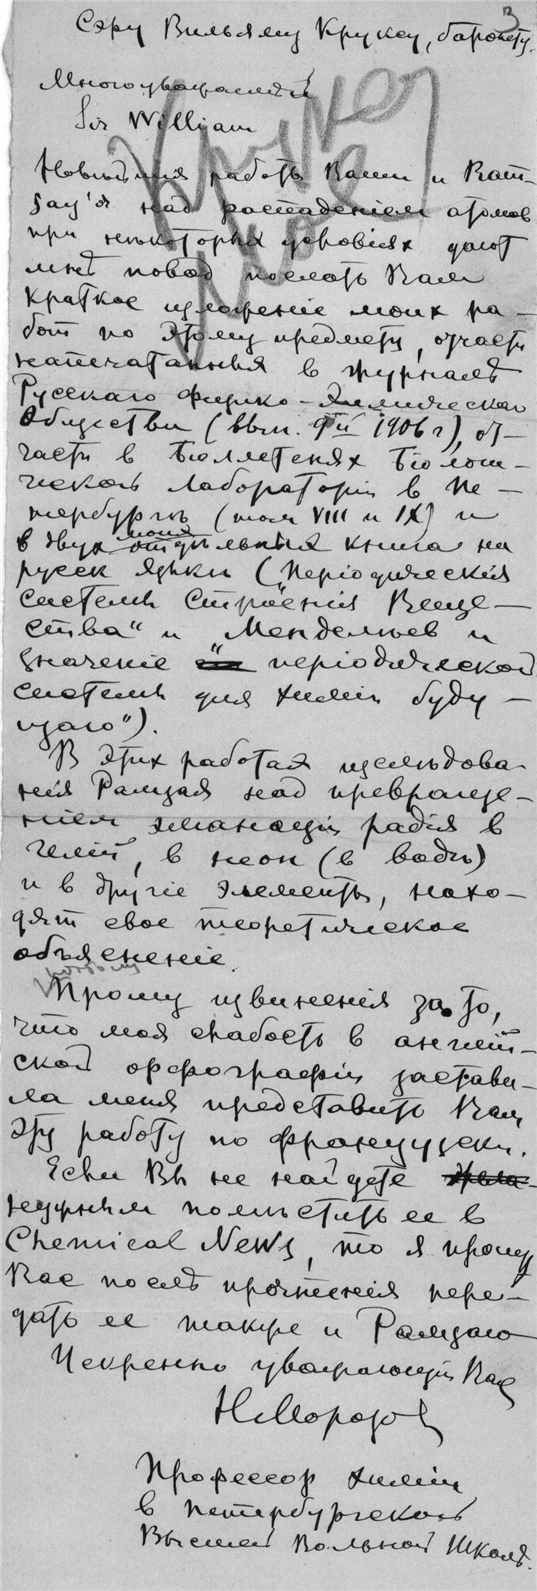 3
Сэру Вильяму Круксу, баронету.
Многоуважаемый
Sir William
Новѣйшія работы Ваши и Ram-
say'я над распаденіем атомов
при нѣкоторых условіях дают
мнѣ повод послать Вам
краткое изложеніе моих ра-
бот по этому предмету, отчасти
напечатанныя в журналѣ
Русскаго Физико-Химическаго
Общества (вып. 9й 1906 г), от-
части в Бюллетенях Біологи-
ческой Лабораторіи в Пе-
тербургѣ (том VIII и IX) и
в двух моих отдѣльных книгах на
русск языки („Періодическія
системы строенія Веще-
ства“ и „Менделѣев и
значеніе періодической
системы для химіи буду-
щаго“).
В этих работах изслѣдова-
нія Рамзая над превраще-
ніем эманаціи радія в
гелій, в неон (в водѣ)
и в другіе элементы, нахо-
дят свое теоретическое
объясненіе.
Прошу извиненія за то,
что моя слабость в англій-
ской орфографіи застави-
ла меня представить Вам
эту работу по французски.
Если Вы не найдете
нужным помѣстить ее в
Chemical News, то я прошу
Вас послѣ прочтенія пере-
дать ее также и Рамзаю
Искренно уважающій Вас
Н Морозов
Профессор химіи
в Петербургской
Высшей Вольной Школѣ.